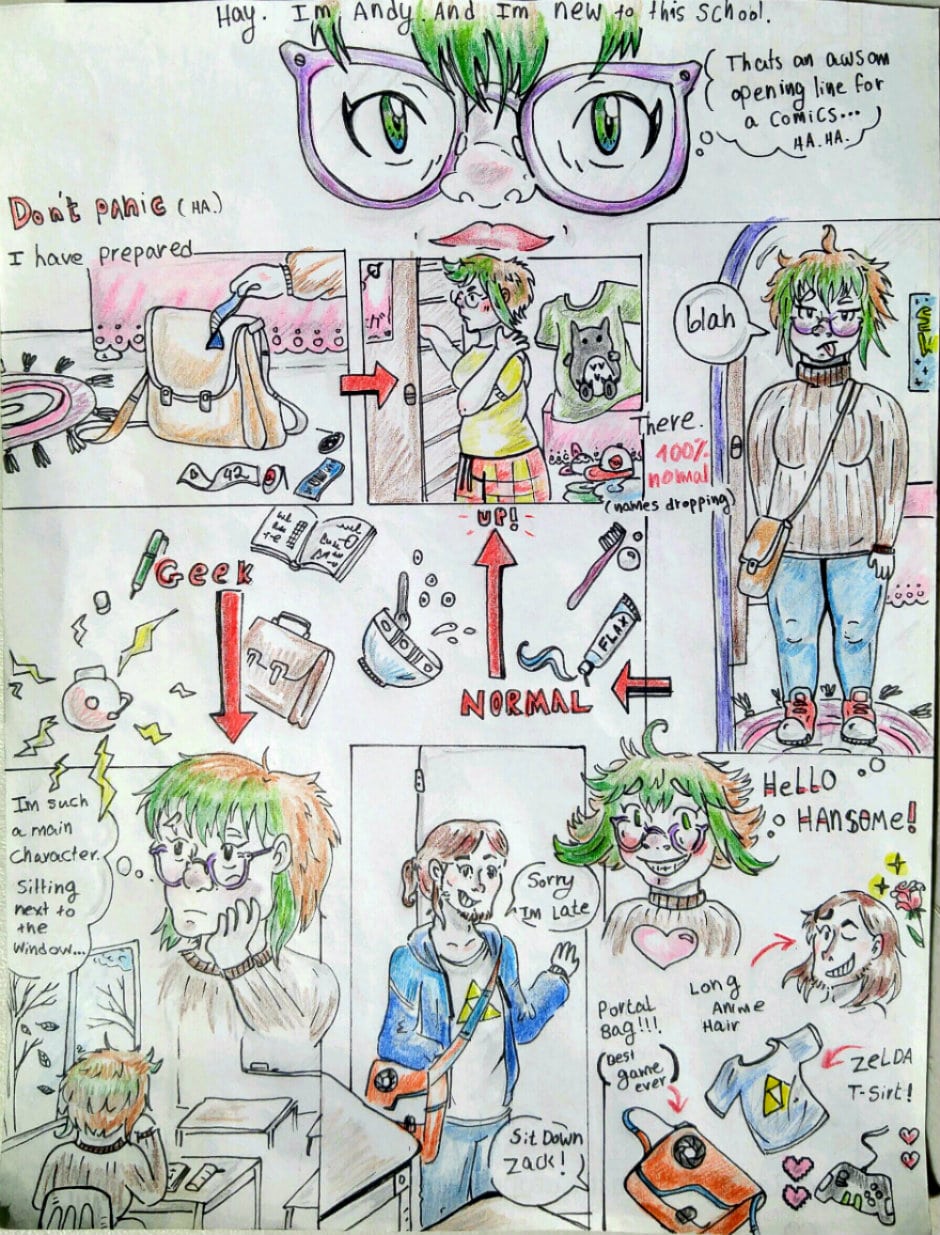 Hay. Im Andy. And Im new to this school.
Thats an awsom
opening line for
a comics...
HA. HA.
Don't panic (HA.)
I have prepared
42
blah
There.
100%
normal
(names dropping)
UP!
Geek
FLAX
NORMAL
Im such
a main
character.
Sitting
next to
the
window...
Sorry
Im Late
Sit Down
Zack!
HeLLO
HANSOME!
Long
Anime
Hair
Portal
Bag!!!
(Best
game
ever)
ZeLDA
T-Sirt!